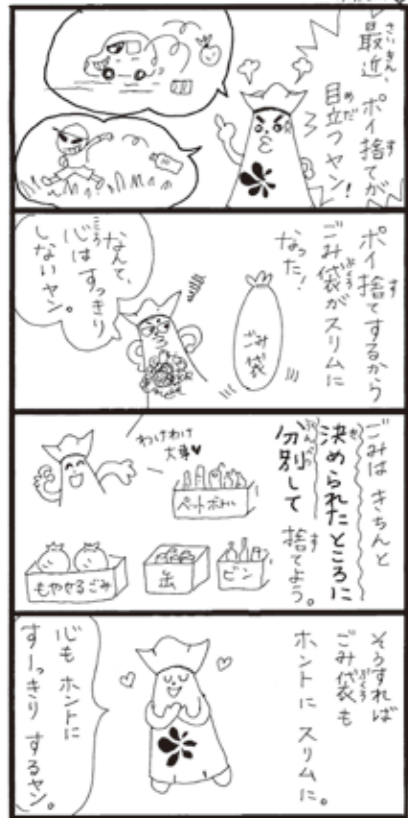 最近、
ポイ捨てが
目立つヤン!
ポイ捨てするから
ごみ袋がスリムに
なった!
ごみ袋
なんて、
心はすっきり
しないヤン。
ごみは きちんと
決められたところに
分別して 捨てよう。
わけわけ
大事♥
ペットボトル
もやせるごみ
缶
ビン
そうすれば
ごみ袋も
ホントに スリムに。
心も ホントに
すーっきり するヤン。